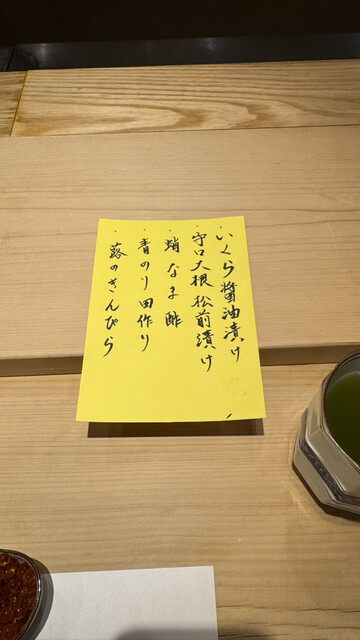 いくら醤油漬け
守口大根松前漬け
蛸なます酢
青のり田作り
蕗のきんぴら